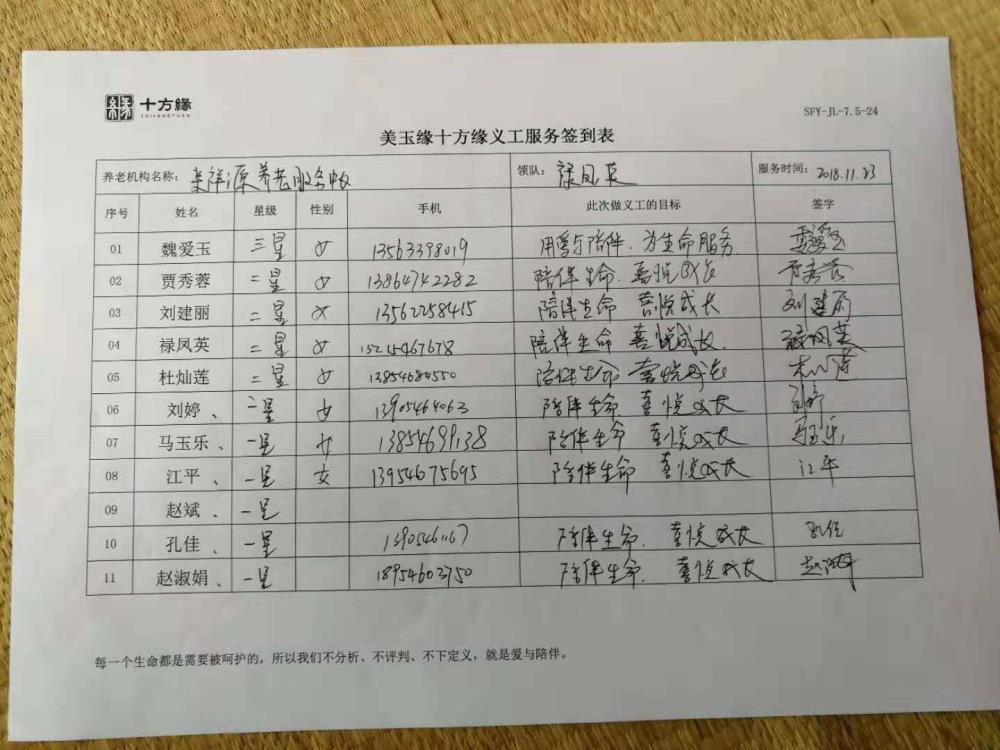 十方緣
SHIFANGYUAN
SFY-JL-7.5-24
美玉缘十方缘义工服务签到表
养老机构名称: 祥源养老服务中心 领队: 禄凤英 服务时间: 2018.11.23
序号 姓名 星级 性别 手机 此次做义工的目标 签字
01 魏爱玉 三星 女 13563398019 用爱与陪伴.为生命服务
02 贾秀蓉 二星 女 13864742282 陪伴生命.喜悦成长 贾秀蓉
03 刘建丽 二星 女 13562258415 陪伴生命 喜悦成长 刘建丽
04 禄凤英 二星 女 15215467678 陪伴生命 喜悦成长. 禄凤英
05 杜灿莲 二星 女 13854684550 陪伴生命 喜悦成长
06 刘婷、 一星 女 13905464063 陪伴生命. 喜悦成长 刘婷
07 马玉乐、 一星 女 13854699138 陪伴生命 喜悦成长 马玉乐
08 江平、 一星 女 13954675695 陪伴生命 喜悦成长 江平
09 赵斌、 一星
10 孔佳、 一星 陪伴生命. 喜悦成长 孔佳
11 赵淑娟、 一星 18954603750 陪伴生命. 喜悦成长
每一个生命都是需要被呵护的，所以我们不分析、不评判、不下定义，就是爱与陪伴。